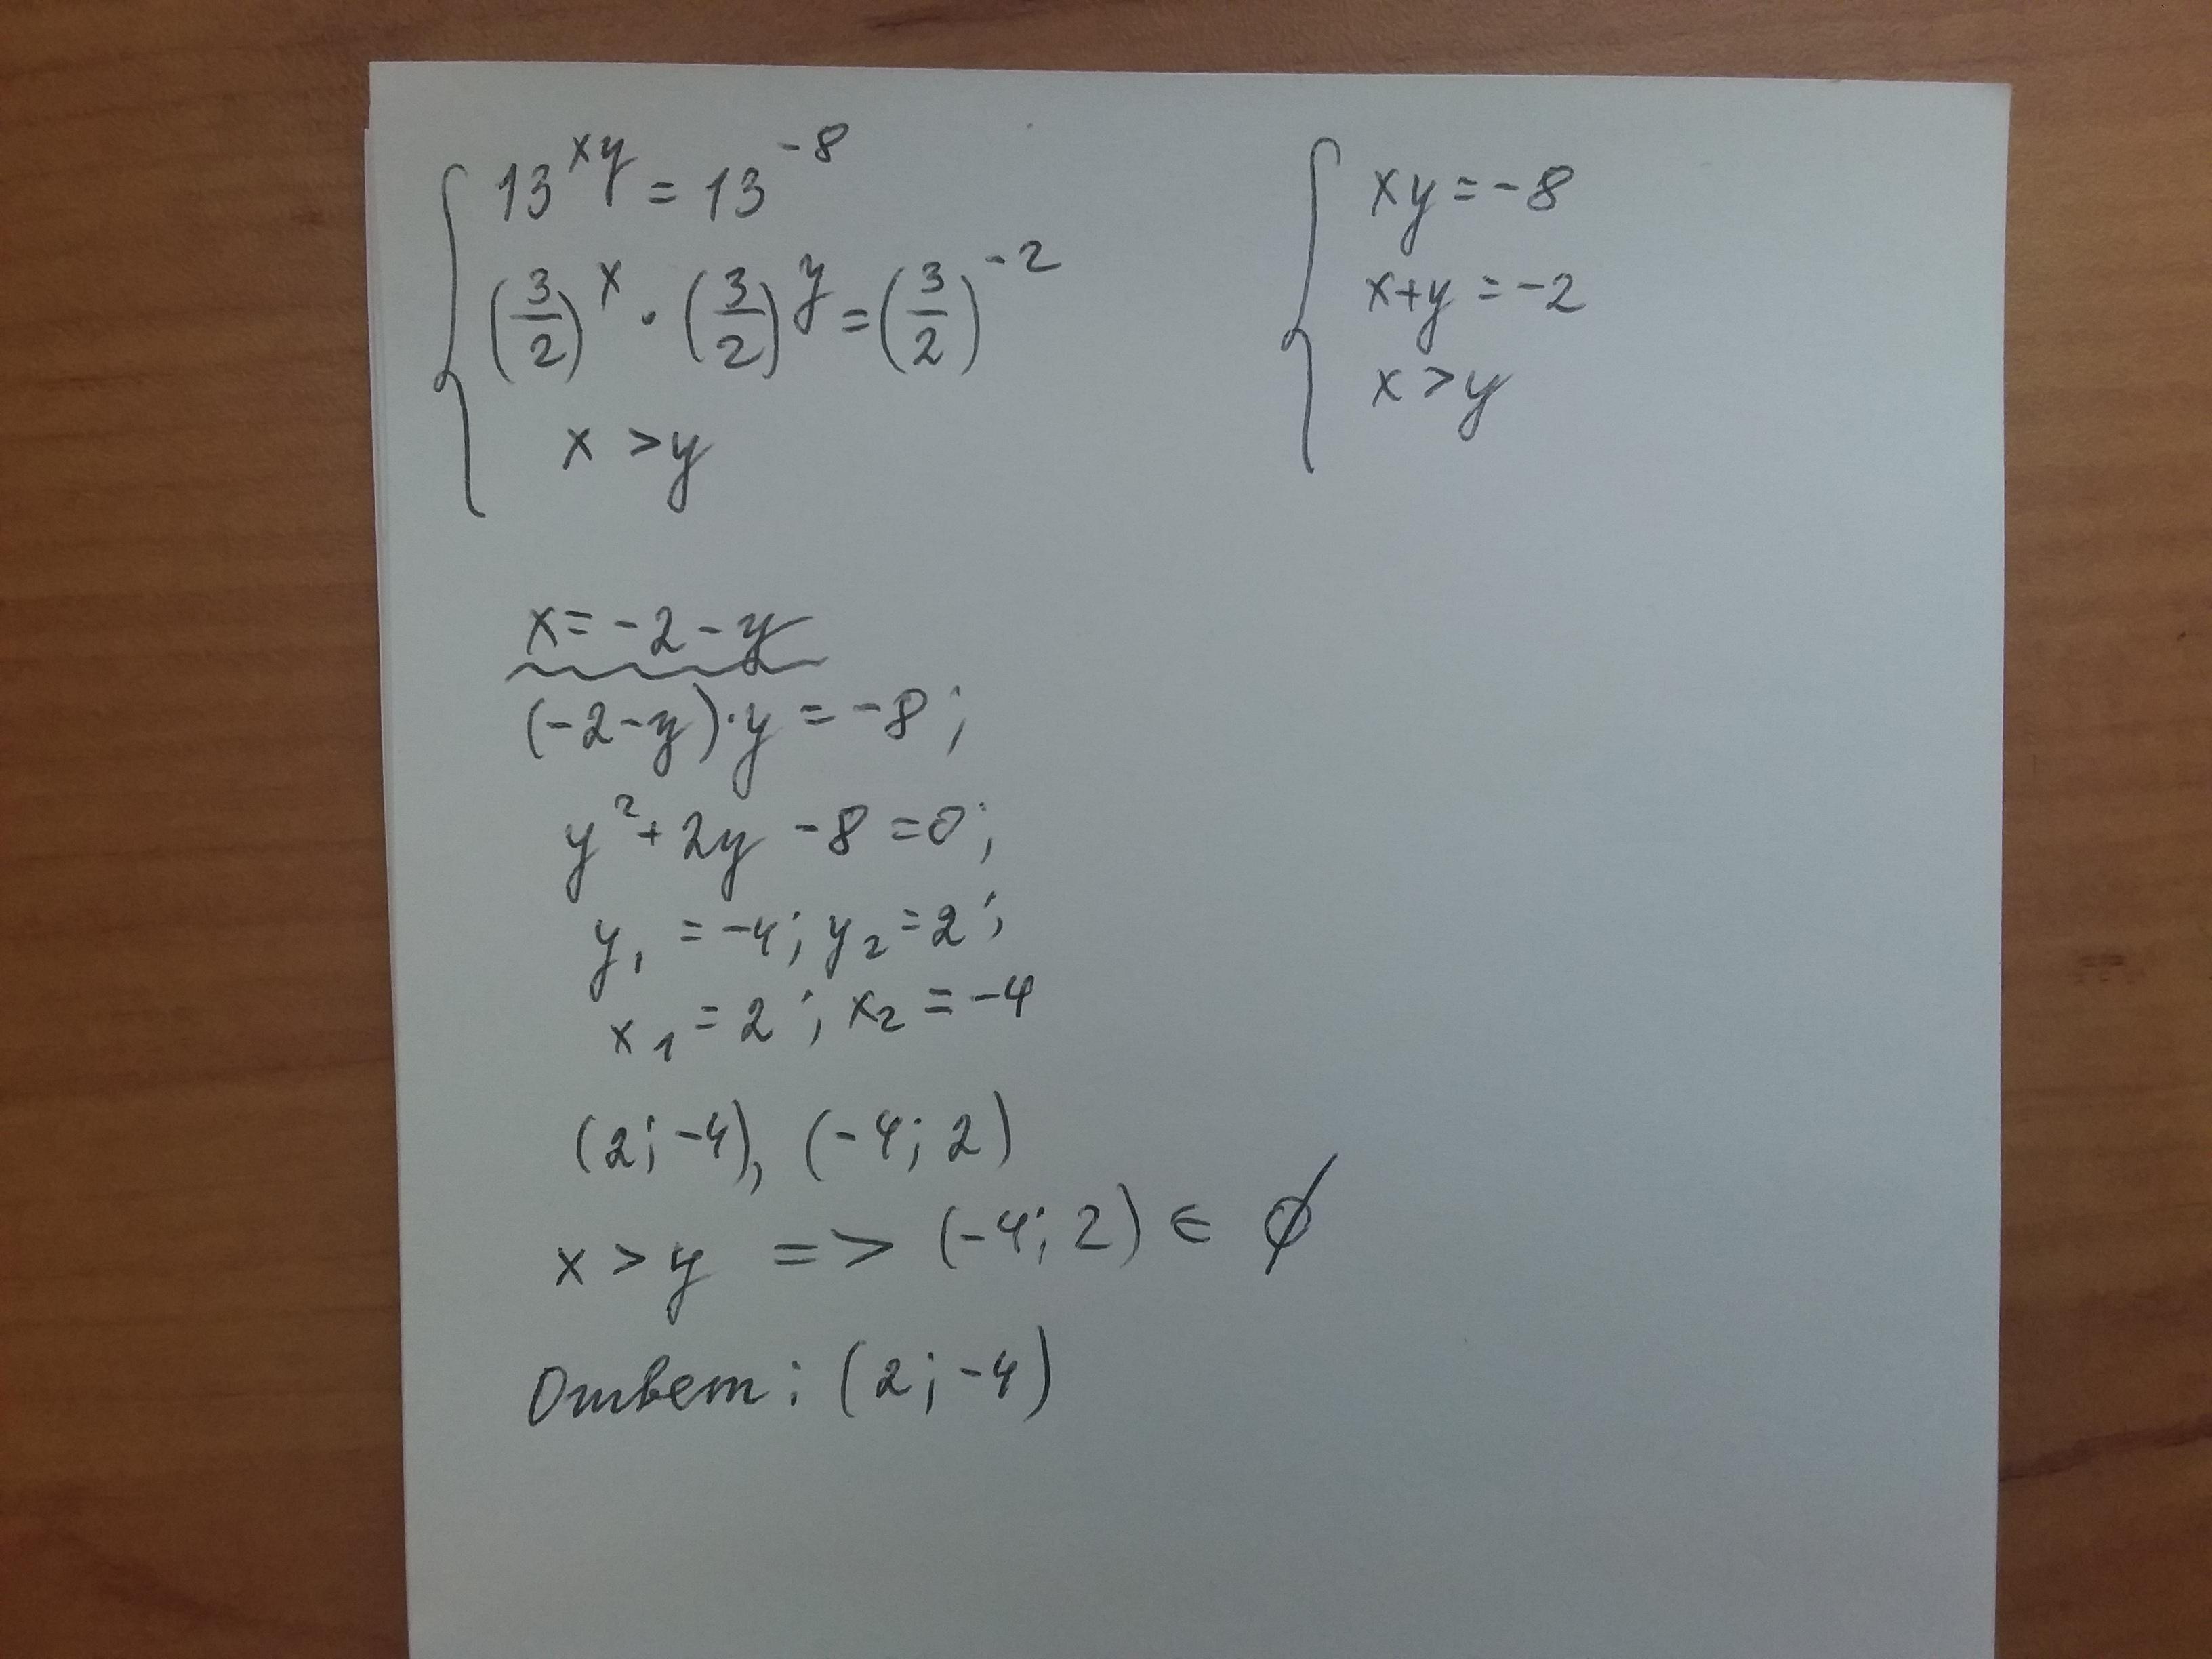 13^{xy} = 13^{-8}
(3/2)^x · (3/2)^y = (3/2)^{-2}
x > y
xy = -8
x+y = -2
x > y
x = -2 - y
(-2-y)·y = -8;
y² + 2y - 8 = 0;
y₁ = -4; y₂ = 2;
x₁ = 2; x₂ = -4
(2; -4), (-4; 2)
x > y => (-4; 2) ∈ ∅
Ответ: (2; -4)